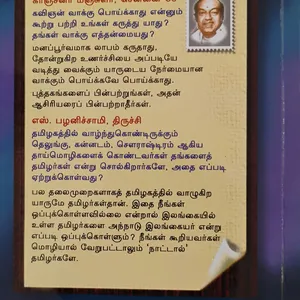 கவிஞன் வாக்கு பொய்க்காது என்னும்
கூற்று பற்றி உங்கள் கருத்து யாது?
தங்கள் வாக்கு எத்தன்மையது?
மனப்பூர்வமாக லாபம் கருதாது,
தோன்றுகிற உணர்ச்சியை அப்படியே
வடித்து வைக்கும் யாருடைய நேர்மையான
வாக்கும் பொய்க்கவே பொய்க்காது.
புத்தகங்களைப் பின்பற்றுங்கள், அதன்
ஆசிரியரைப் பின்பற்றாதீர்கள்.
எஸ். பழனிச்சாமி, திருச்சி
தமிழகத்தில் வாழ்ந்துகொண்டிருக்கும்
தெலுங்கு, கன்னடம், சௌராஷ்டிரம் ஆகிய
தாய்மொழிகளைக் கொண்டவர்கள் தங்களைத்
தமிழர்கள் என்று சொல்கிறார்களே, அதை எப்படி
ஏற்றுக்கொள்வது?
பல தலைமுறைகளாகத் தமிழகத்தில் வாழுகிற
யாருமே தமிழர்கள்தான். இதை நீங்கள்
ஒப்புக்கொள்ளவில்லை என்றால் இலங்கையில்
உள்ள தமிழர்களை அந்நாடு இலங்கையர் என்று
எப்படி ஒப்புக்கொள்ளும்? நீங்கள் கூறியவர்கள்
மொழியால் வேறுபட்டாலும் 'நாட்டால்'
தமிழர்களே.